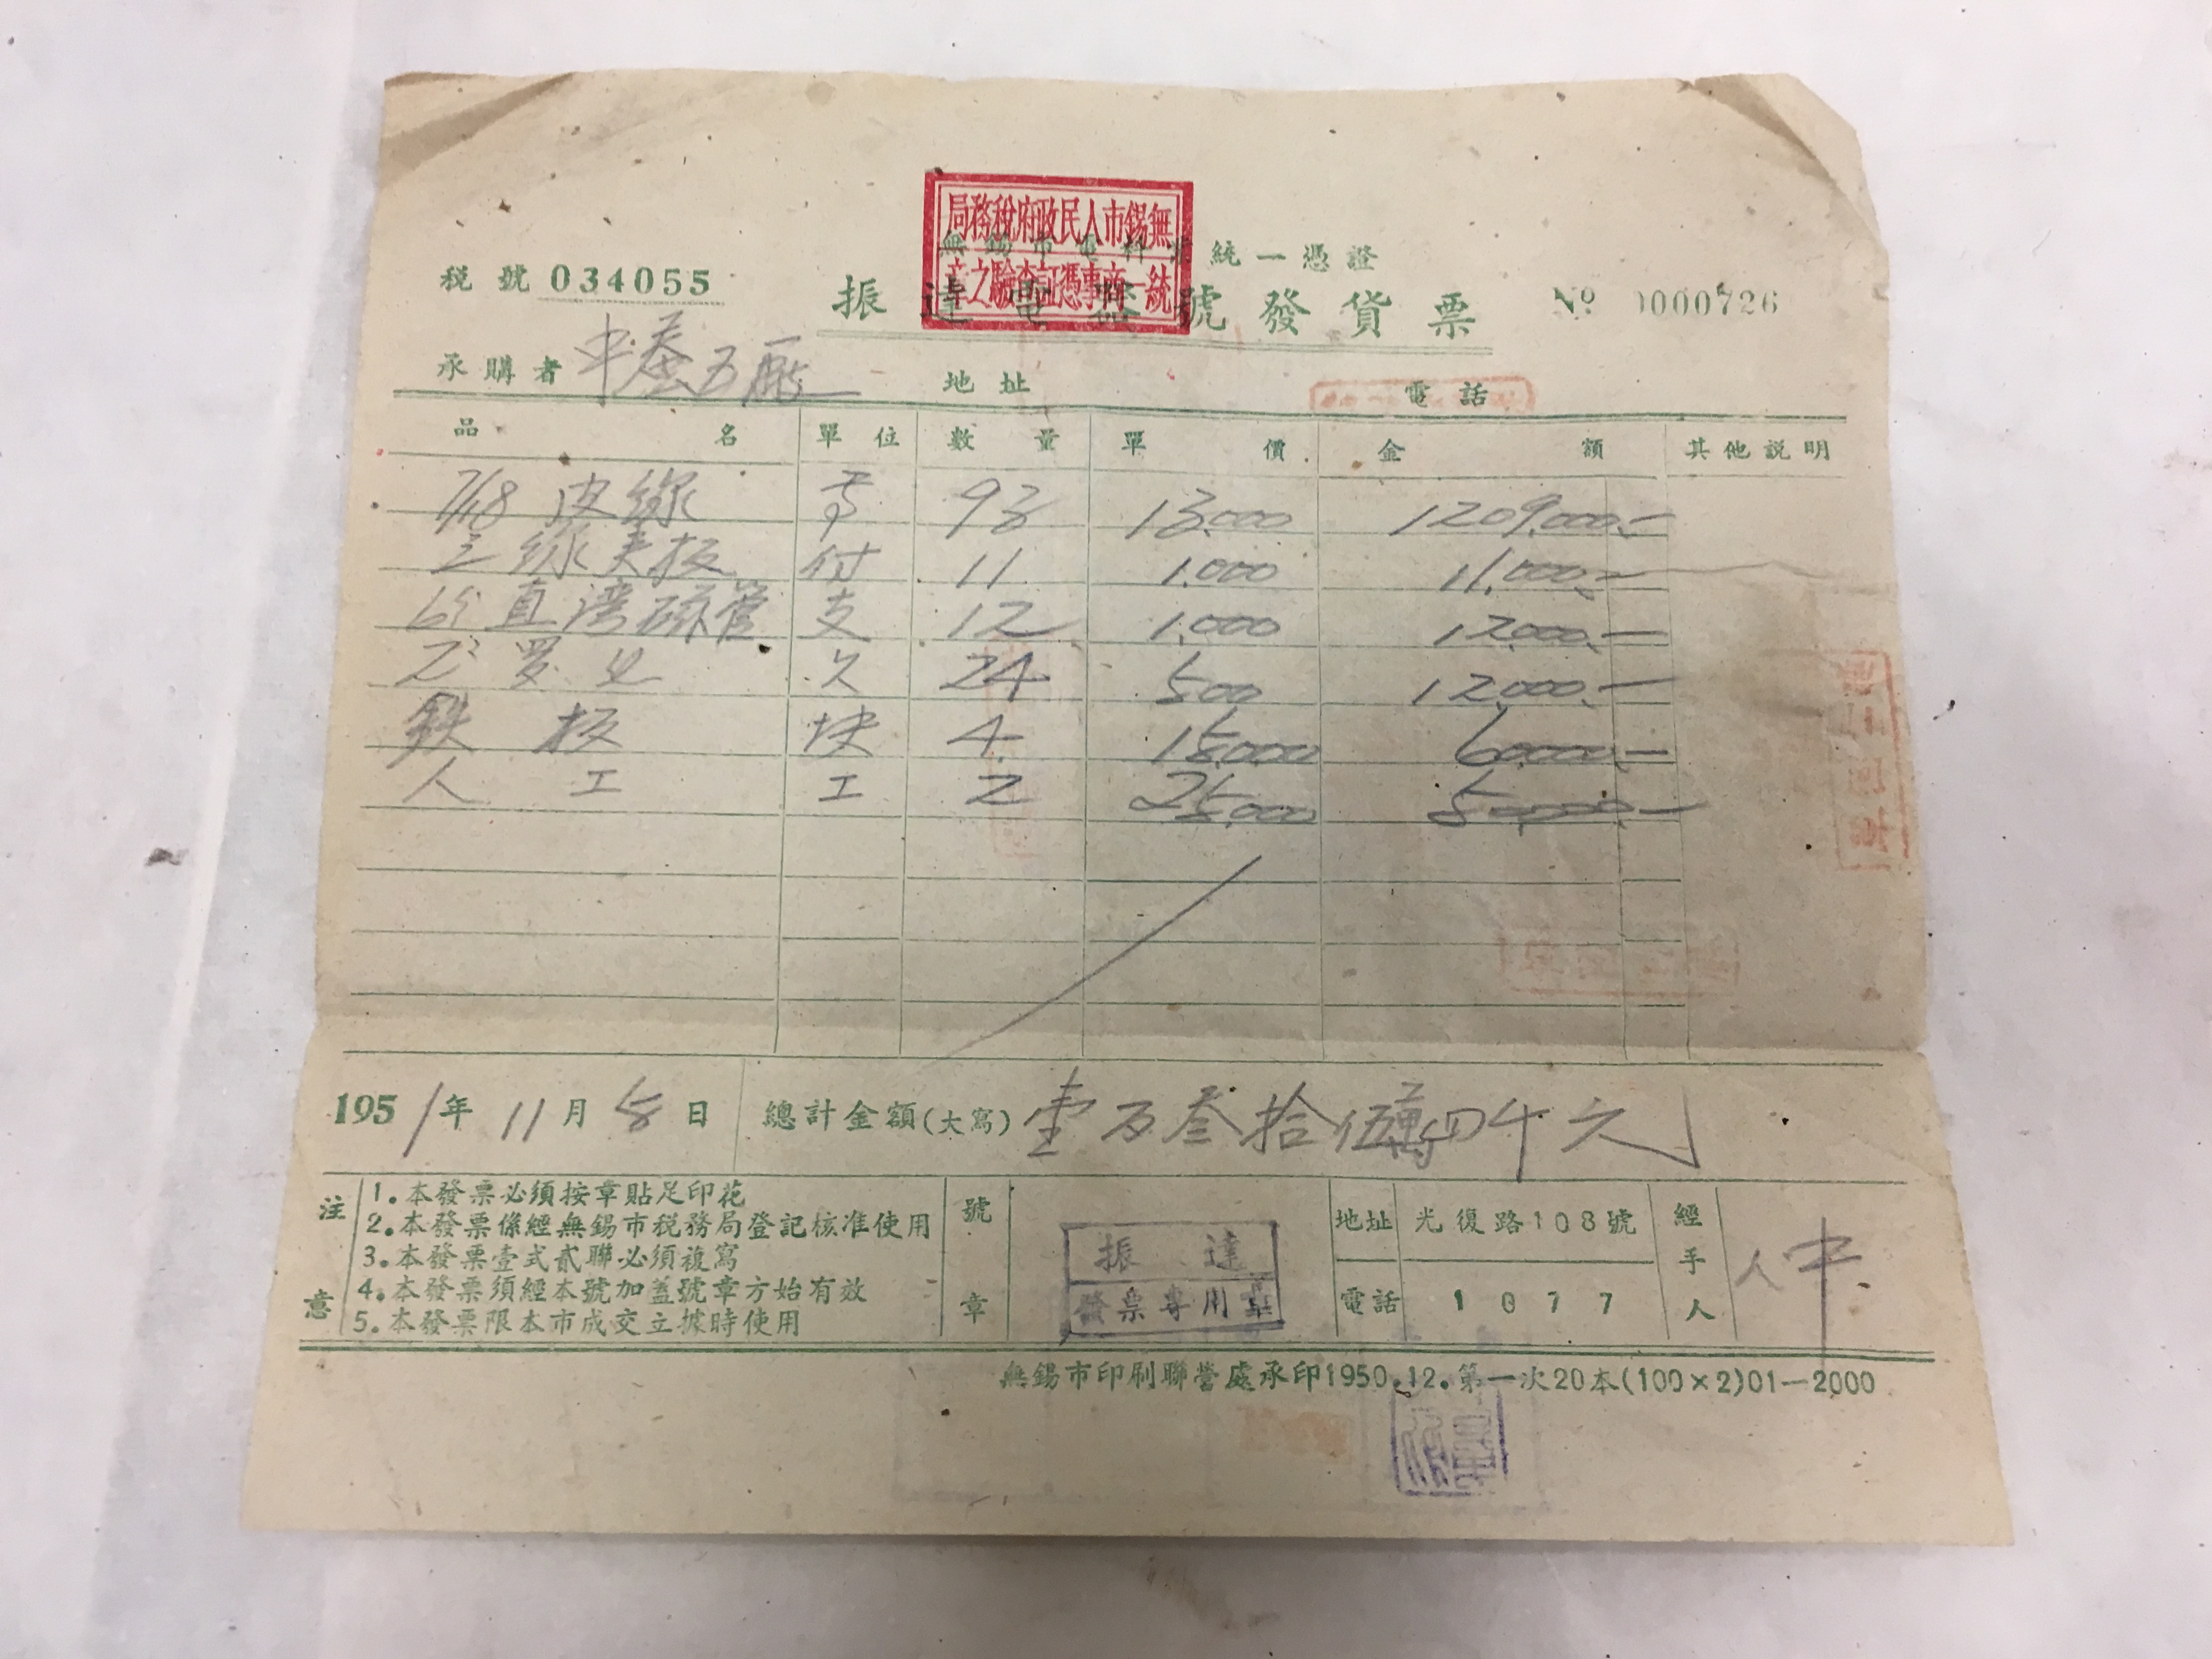 無錫市人民政府稅務局
統一商事憑証查驗之章
無錫市電料業統一憑證
稅號 034055
振達電器號發貨票
№ 0000726
承購者 中蚕五廠 地址 電話
品名 單位 數量 單價 金額 其他説明
7/18 皮線 93 13.000 1209.000.-
三線夾板 付 11 1.000 11.000.-
直湾磁管 支 12 1.000 12.000.-
24 500 12.000.-
鉄板 块 4 15.000 60.000.-
人工 工 2 25.000 50.000.-
1951年 11月 5日 總計金額(大寫) 壹百叁拾伍萬四千元
注意
1.本發票必須按章貼足印花
2.本發票係經無錫市稅務局登記核准使用
3.本發票壹式貳聯必須複寫
4.本發票須經本號加蓋號章方始有效
5.本發票限本市成交立據時使用
號章
振達
發票專用章
地址 光復路108號
電話 1077
經手人
無錫市印刷聯營處承印1950.12.第一次20本(100×2)01—2000